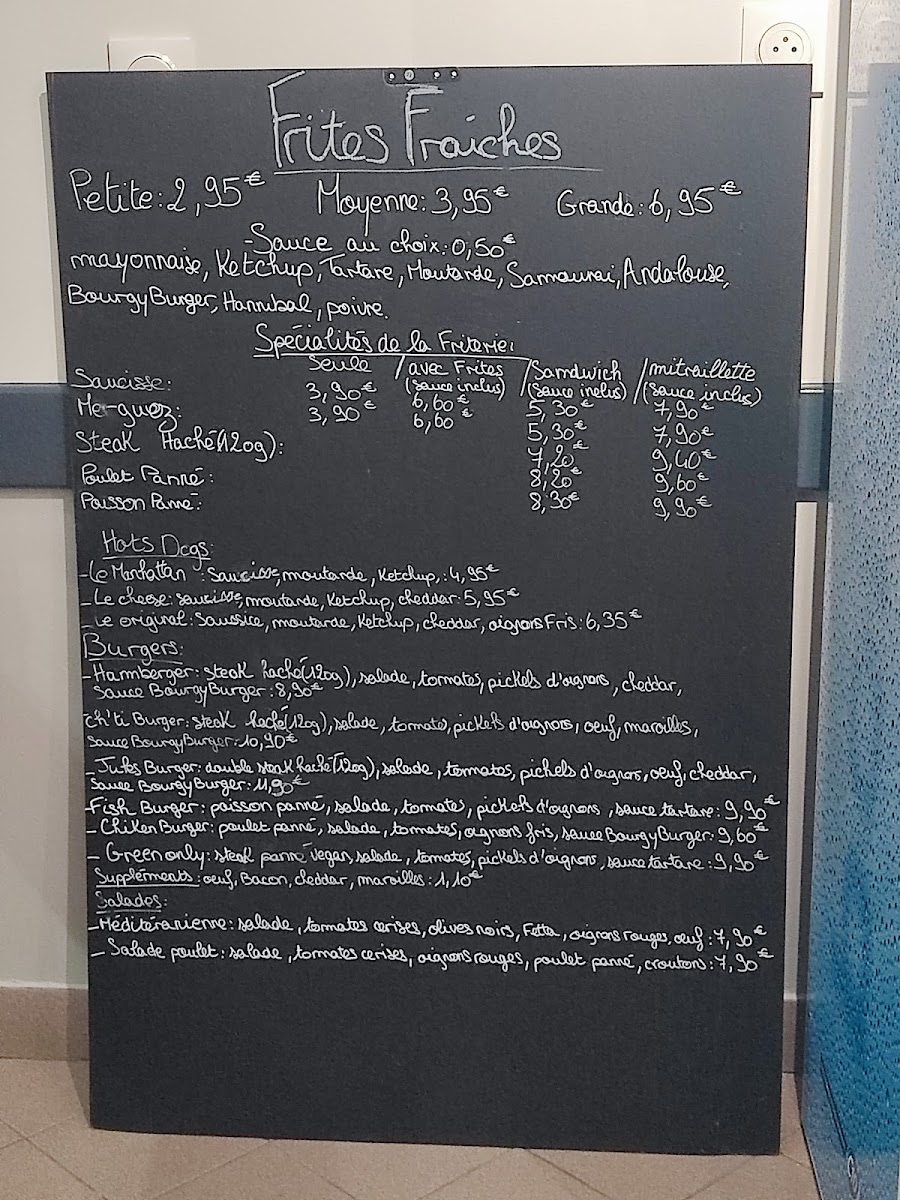 Frites Fraiches
Petite: 2,95€ Moyenne: 3,95€ Grande: 6,95€
-Sauce au choix: 0,50€
mayonnaise, Ketchup, Tartare, Moutarde, Samourai, Andalouse,
BourgyBurger, Hannibal, poivre.
Spécialités de la Friterie:
Seule / avec Frites / Sandwich / mitraillette
(sauce inclus) (sauce inclus) (sauce inclus)
Saucisse: 3,90€ 6,60€ 5,30€ 7,90€
Merguez: 3,90€ 6,60€ 5,30€ 7,90€
Steak Haché(120g): 7,20€ 9,40€
Poulet Panné: 8,20€ 9,60€
Poisson Panné: 8,30€ 9,90€
Hots Dogs:
-Le Manhattan: Saucisse, moutarde, Ketchup,: 4,95€
-Le cheese: saucisse, moutarde, Ketchup, cheddar: 5,95€
-Le original: Saussice, moutarde, Ketchup, cheddar, oignons Fris: 6,35€
Burgers:
-Hamberger: steak haché(120g), salade, tomates, pickels d'oignons, cheddar,
sauce BourgyBurger: 8,90€
ch'ti Burger: steak haché(120g), salade, tomates, pickels d'oignons, oeuf, maroilles,
sauce BourgyBurger: 10,90€
-Juks Burger: double steak haché(120g), salade, tomates, pickels d'oignons, oeuf, cheddar,
sauce BourgyBurger: 11,90€
-Fish Burger: poisson panné, salade, tomates, pickels d'oignons, sauce tartare: 9,90€
- Chiken Burger: poulet panné, salade, tomates, oignons fris, sauce BourgyBurger: 9,60€
- Green only: steak panné vegan, salade, tomates, pickels d'oignons, sauce tartare: 9,90€
Suppléments: oeuf, Bacon, cheddar, maroilles: 1,10€
Salades:
-Méditéranienne: salade, tomates cerises, olives noirs, Fetta, oignons rouges, oeuf: 7,90€
- Salade poulet: salade, tomates cerises, oignons rouges, poulet panné, croutons: 7,90€